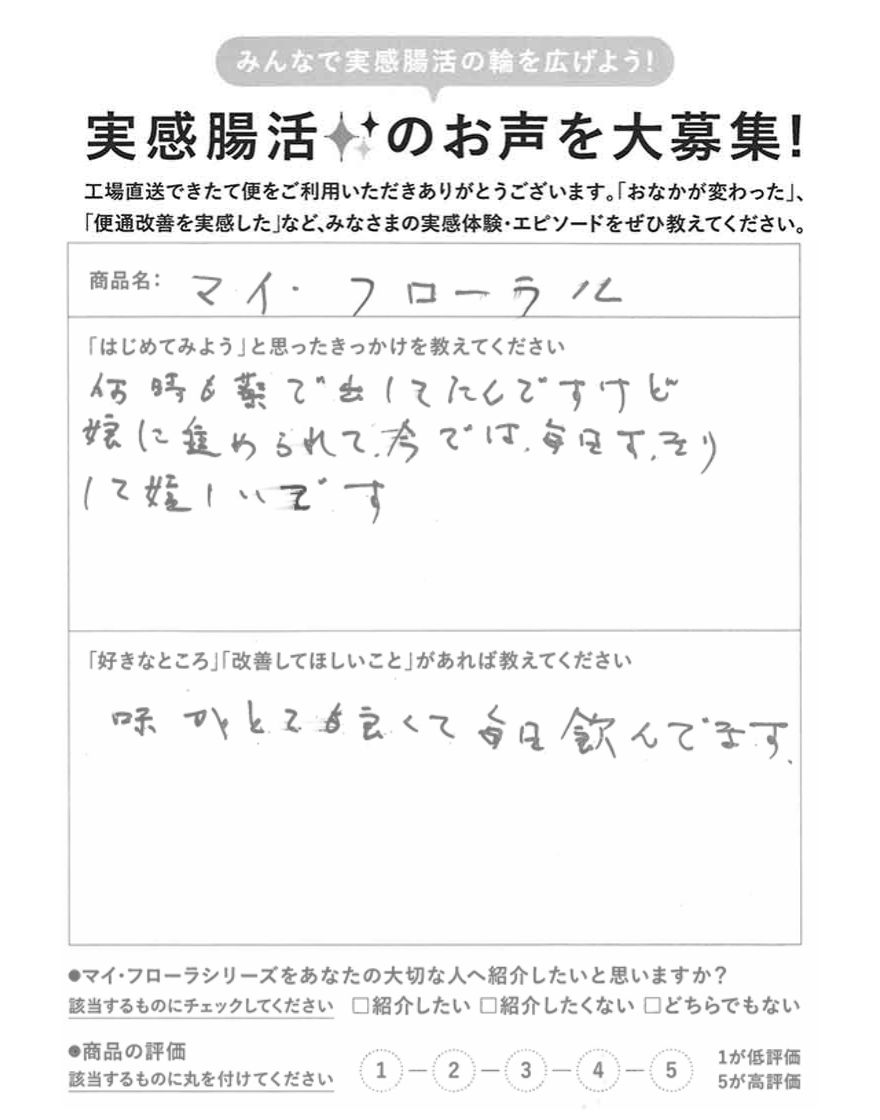 みんなで実感腸活の輪を広げよう!
実感腸活のお声を大募集!
工場直送できたて便をご利用いただきありがとうございます。「おなかが変わった」、
「便通改善を実感した」など、みなさまの実感体験・エピソードをぜひ教えてください。
商品名: マイ・フローラル
「はじめてみよう」と思ったきっかけを教えてください
何時も薬で出してたんですけど
娘に進められて、今では、毎日すっきり
して嬉しいです
「好きなところ」「改善してほしいこと」があれば教えてください
味がとても良くて毎日飲んでます。
●マイ・フローラシリーズをあなたの大切な人へ紹介したいと思いますか?
該当するものにチェックしてください □紹介したい □紹介したくない □どちらでもない
●商品の評価
該当するものに丸を付けてください 1 — 2 — 3 — 4 — 5 1が低評価
5が高評価